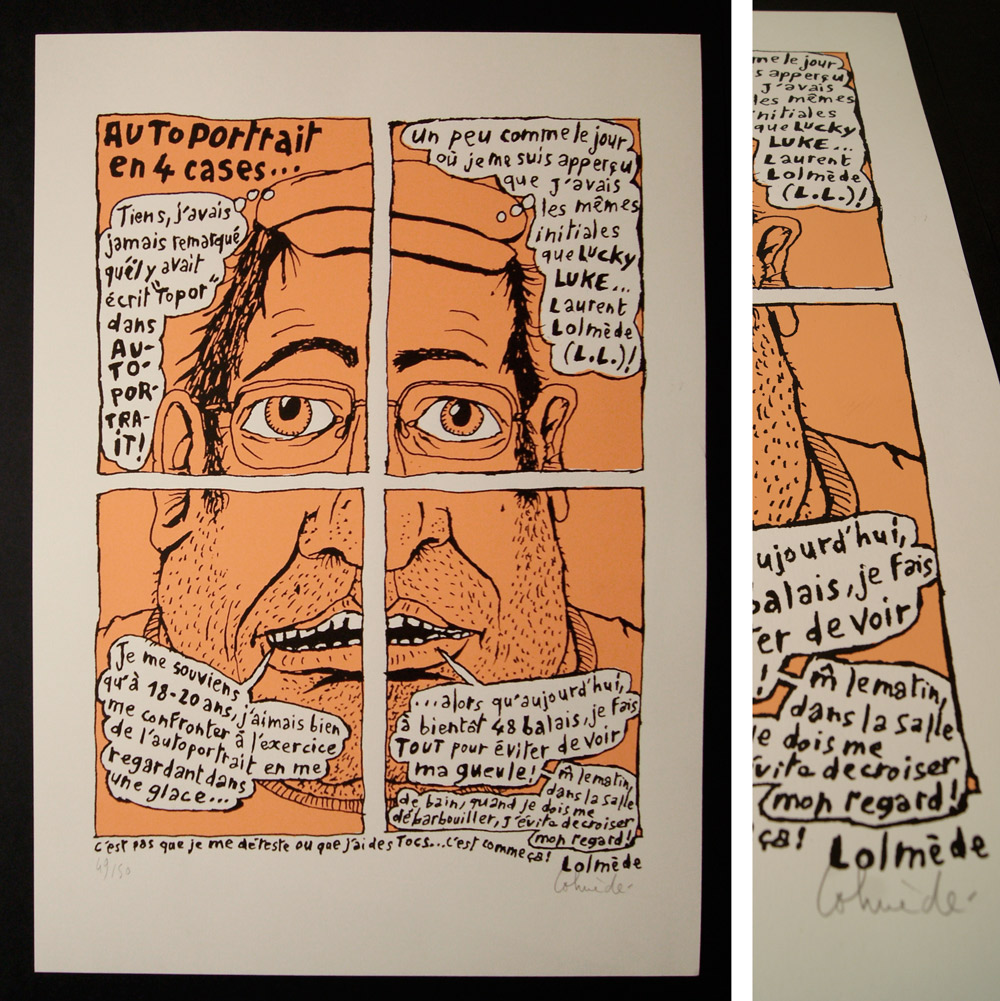 AUTOPORTRAIT
en 4 cases...
Tiens, j'avais
jamais remarqué
qu'él y avait
écrit "Topor"
dans
AU-
TO-
POR-
TRA-
iT!
un peu comme le jour
où je me suis apperçu
que J'avais
les mêmes
initiales
que Lucky
LUKE...
Laurent
Lolmède
(L.L.)!
Je me souviens
qu'à 18-20 ans, j'aimais bien
me confronter à l'exercice
de l'autoportrait en me
regardant dans
une glace...
...alors qu'aujourd'hui,
à bientôt 48 balais, je fais
TOUT pour éviter de voir
ma gueule!
m̂ le matin,
dans la salle
de bain, quand je dois me
débarbouiller, j'évite de croiser
mon regard!
c'est pas que je me déteste ou que j'ai des Tocs...c'est comme ça!
Lolmède
49/50
Lolmède
me le jour
s apperçu
J'avais
les mêmes
initiales
que Lucky
LUKE...
Laurent
Lolmède
(L.L.)!
ujourd'hui,
balais, je fais
ter de voir
!
m̂ le matin,
dans la salle
je dois me
évite de croiser
mon regard!
ça!
Lolmède
Lolmède